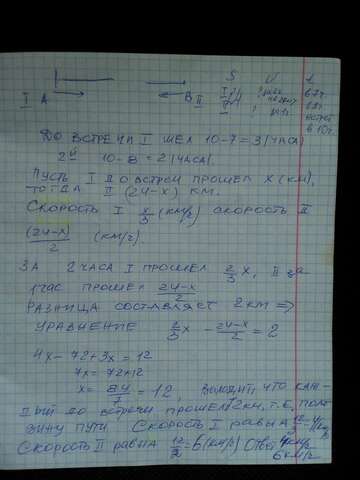 S V t
I A B II I 24
в 7 ч.
в 8 ч.
встреч
в 10 ч.
До встречи I шел 10-7=3 (часа)
2й 10-8=2 (часа).
Пусть I до встреч прошел x (км),
тогда II (24-x) км.
Скорость I x/3 (км/ч) скорость II
(24-x)/2 (км/ч)
За 2 часа I прошел 2/3 x, II за
1 час прошел (24-x)/2
Разница составляет 2 км =>
уравнение 2/3 x - (24-x)/2 = 2
4x-72+3x=12
7x=72+12
x= 84/7 =12, выходит, что каж-
дый до встречи прошел 12 км, т.е. поло-
вину пути. Скорость I равна 12/3=4 км/ч
Скорость II равна 12/2=6 (км/ч) Ответ 4 км/ч
6 км/ч